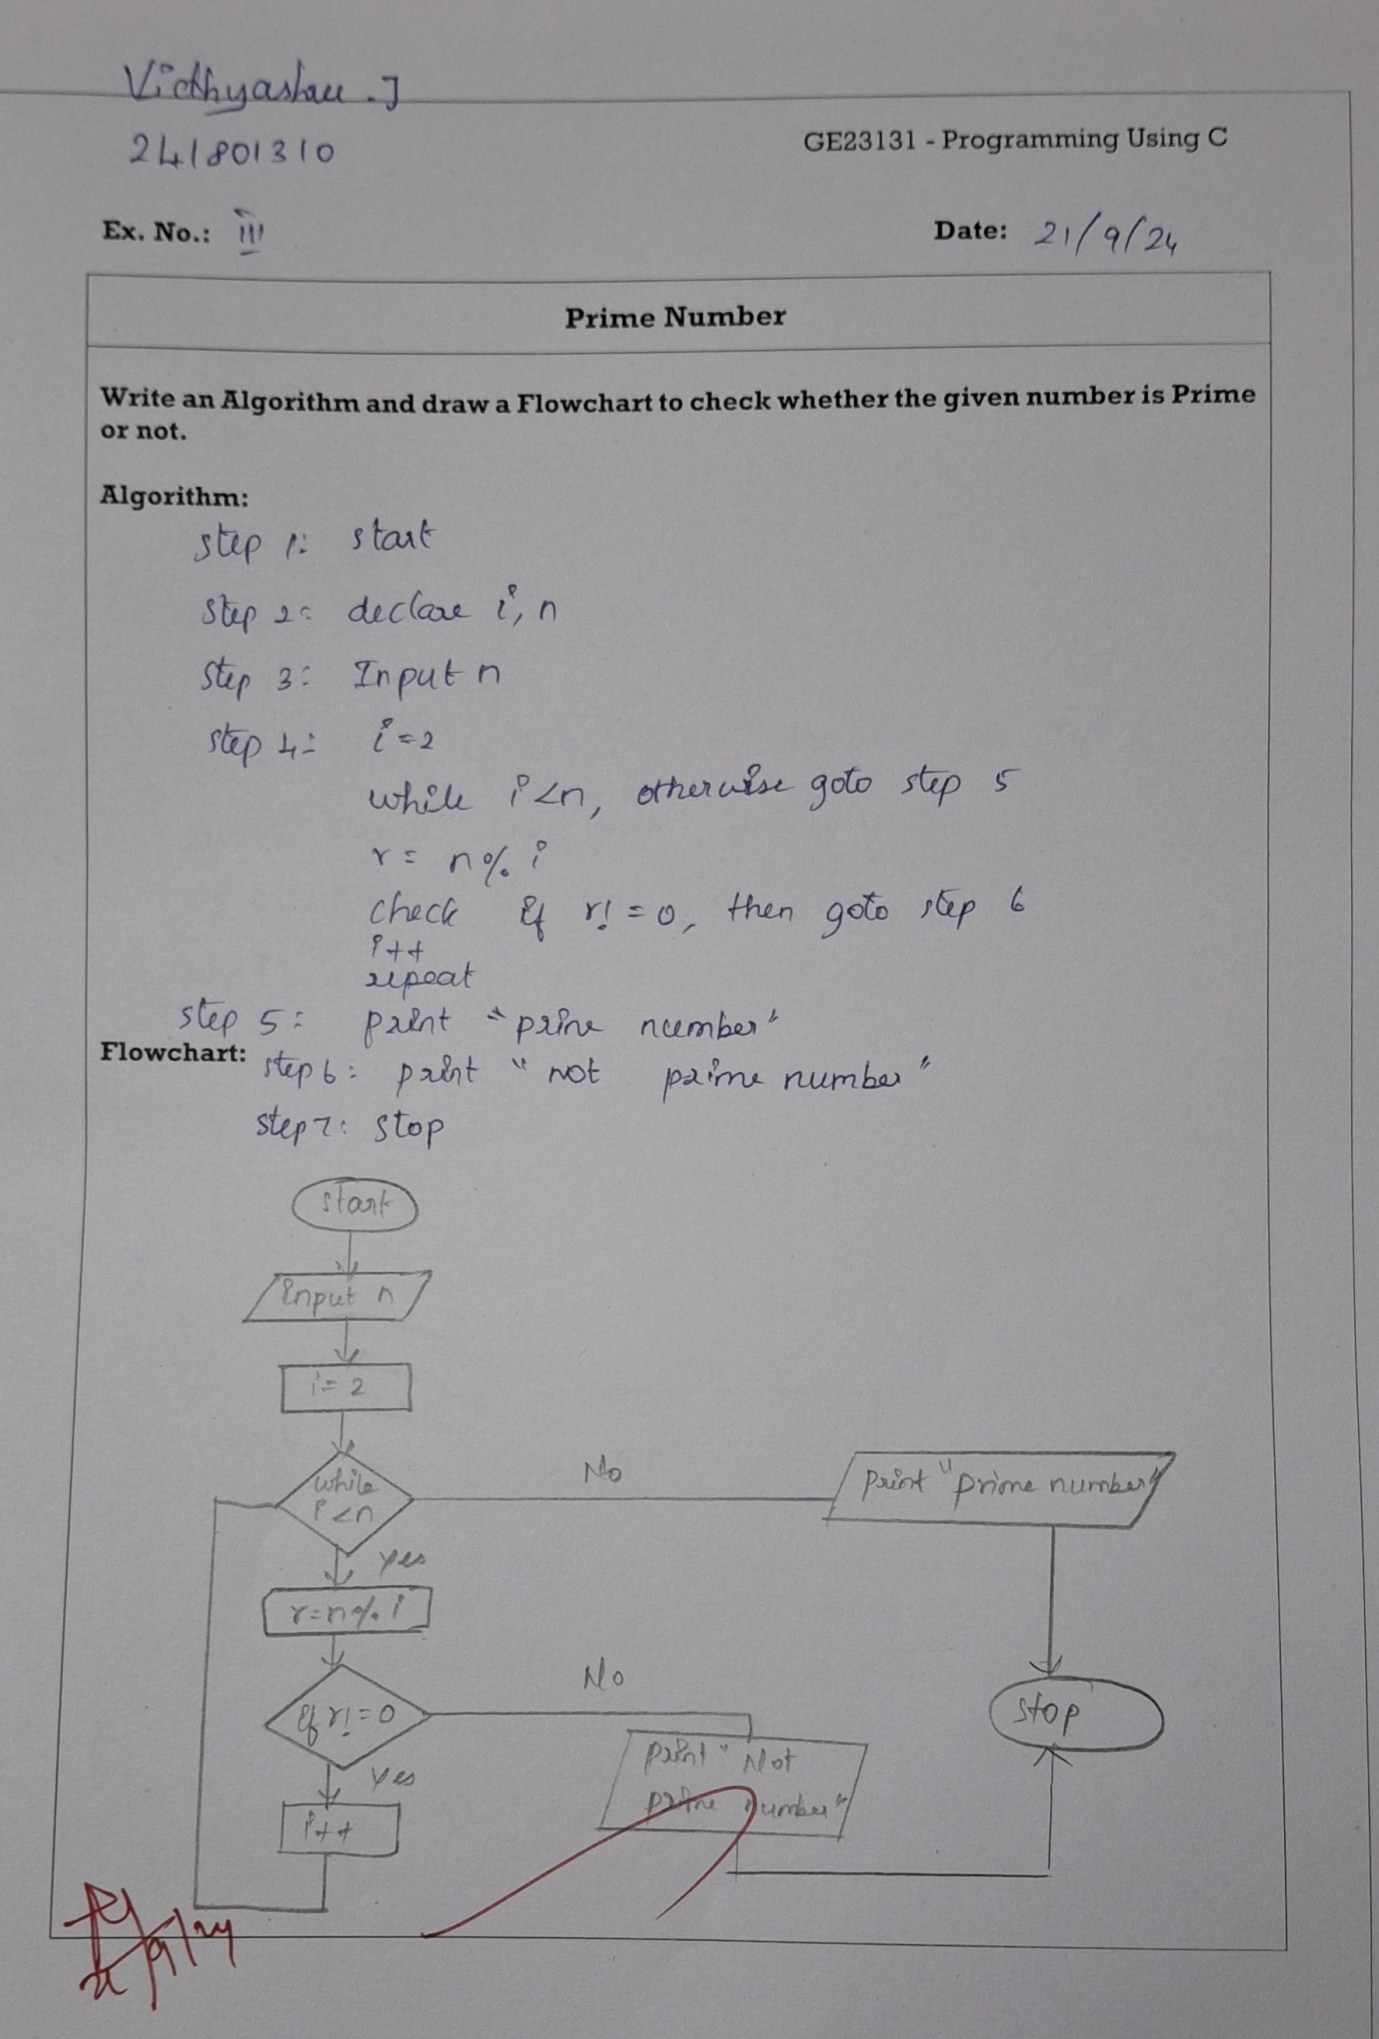 Vidhyashree . J
241801310
GE23131 - Programming Using C
Ex. No.: III
Date: 21/9/24
Prime Number
Write an Algorithm and draw a Flowchart to check whether the given number is Prime
or not.
Algorithm:
step 1: start
step 2: declare i, n
step 3: Input n
step 4: i=2
while i<n, otherwise goto step 5
r = n% i
check if r! = 0, then goto step 6
i++
repeat
step 5: print "prime number"
Flowchart:
step 6: print "not prime number"
step 7: stop
start
Input n
i= 2
while
i<n
No
print "prime number"
yes
r=n% i
No
if r!=0
stop
print "Not
prime number"
yes
i++
9/24